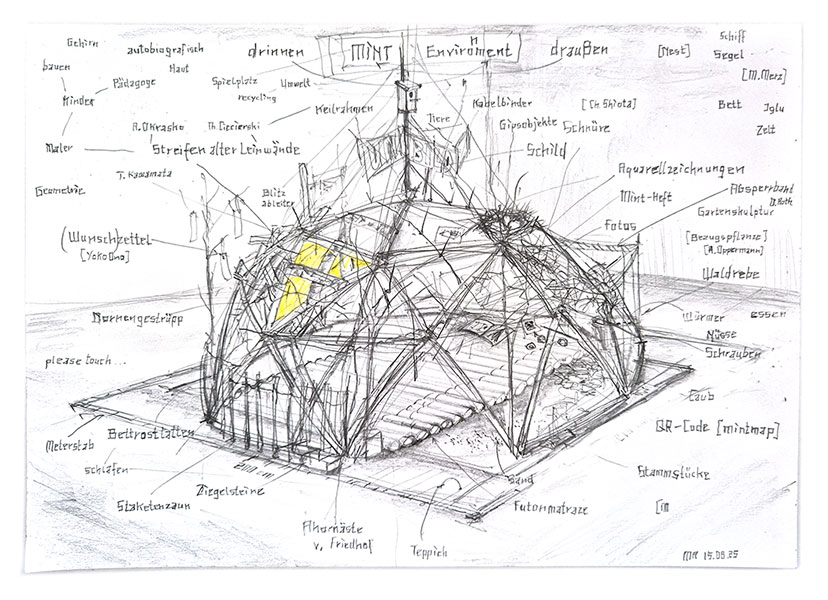 Gehirn
autobiografisch
drinnen
MINT
EnviroMent
n
draußen
[Nest]
Schiff
Segel
[M.Merz]
bauen
Haut
Pädagoge
Kinder
Spielplatz
Umwelt
recycling
Keilrahmen
Tiere
Kabelbinder
[Ch.Shiota]
Bett
Iglu
Zelt
Gipsobjekte
Schnüre
A.Okrasko
Th.Ciecierski
Maler
Streifen alter Leinwände
Schild
T. Kawamata
Blitz
ableiter
Geometrie
Aquarellzeichnungen
Mint-Heft
Absperrband
D.Roth
Gartenskulptur
Fotos
[Bezugspflanze]
[A.Oppermann]
(Wunschzettel
[Yoko Ono]
Waldrebe
Dornengestrüpp
Würmer
essen
Nüsse
Schrauben
please touch...
Laub
QR-Code [mintmap]
Meterstab
Bettrostlatten
schlafen
200 cm
Stammstücke
Ziegelsteine
Staketenzaun
Sand
Futonmatraze
[im
Ahornäste
v. Friedhof
Teppich